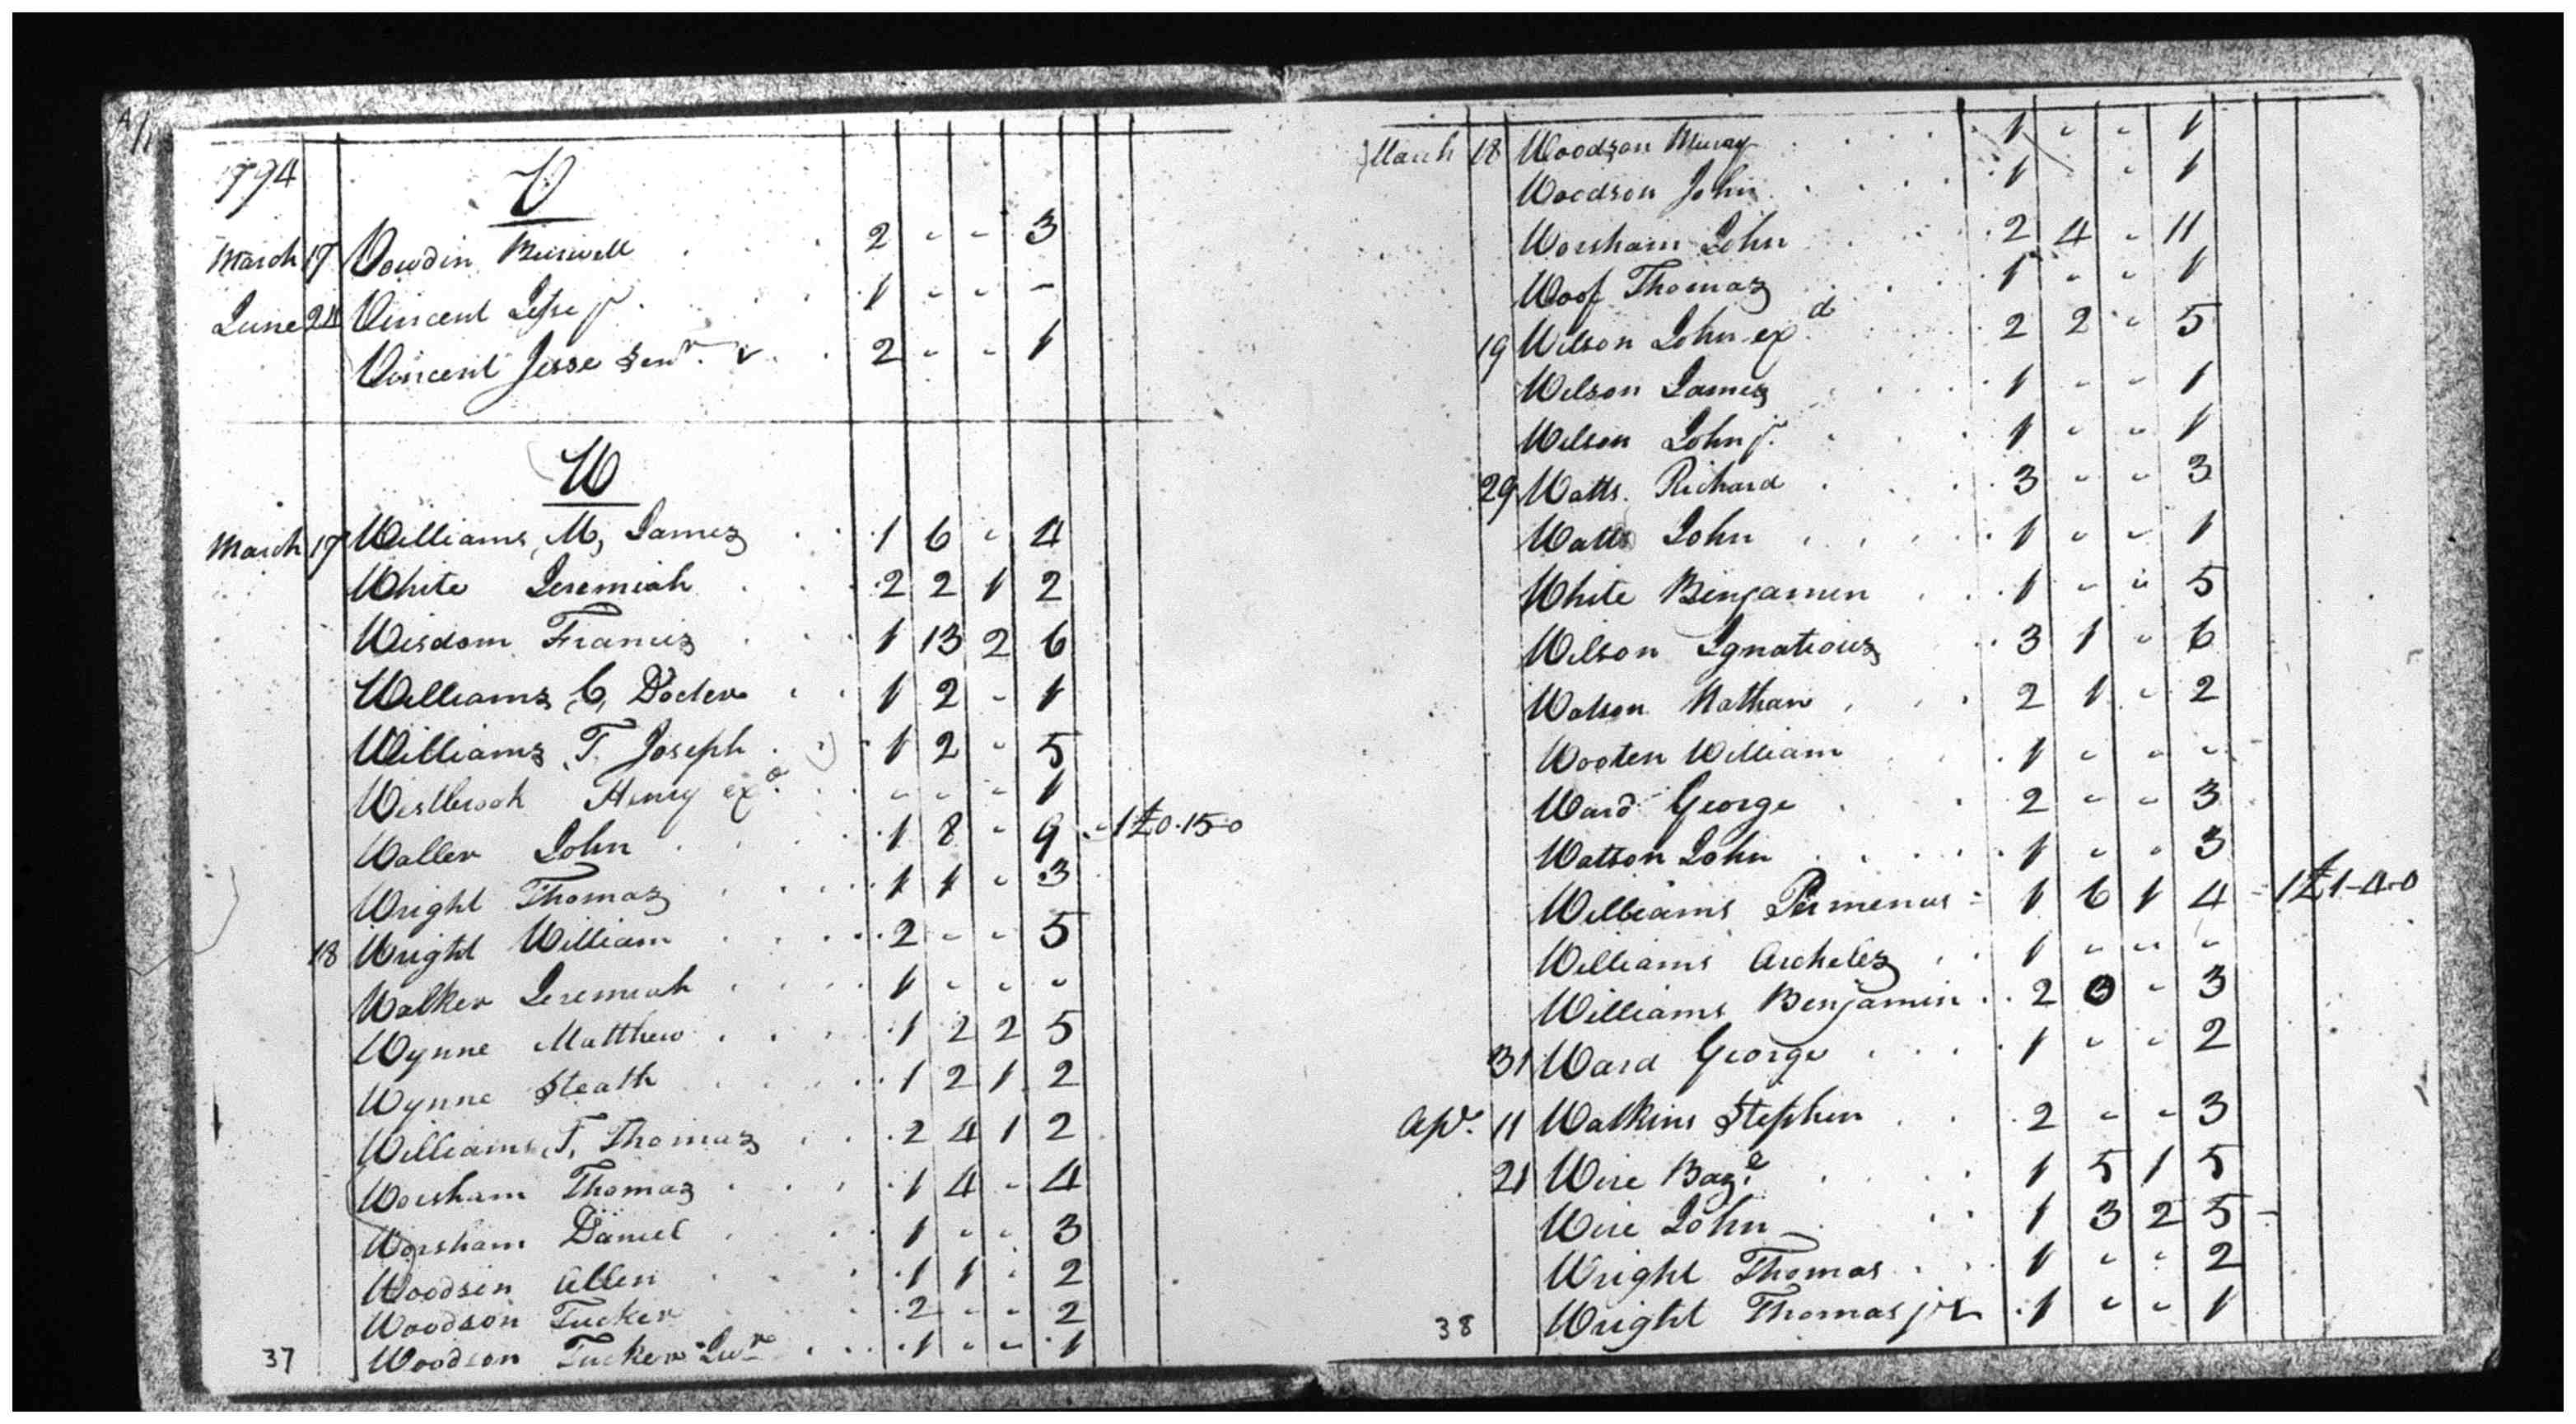 1794
V
March 17 Vowdin Burwell 2 - - 3
June 24 Vincent Jesse jr. 1 - - -
Vincent Jesse Senr. v 2 - - 1
W
March 17 Williams, M, James 1 6 - 4
White Jeremiah 2 2 1 2
Wisdom Francis 1 13 2 6
Williams, C, Docter 1 2 - 1
Williams, T. Joseph 1 2 - 5
Westbrook Henry exd. - - - 1
Waller John 1 8 - 9 - 1 £0.15-0
Wright Thomas 1 1 - 3
18 Wright William 2 - - 5
Walker Jeremiah 1 - - -
Wynne Matthew 1 2 2 5
Wynne Steath 1 2 1 2
Williams, T, Thomas 2 4 1 2
Worsham Thomas 1 4 - 4
Worsham Daniel 1 - - 3
Woodson Allen 1 1 - 2
Woodson Tucker 2 - - 2
37 Woodson Tucker Junr 1 - - 1
March 18 Woodson Murray 1 - - 1
Woodson John 1 - 1
Worsham John 2 4 - 11
Woof Thomas 1 - - 1
19 Wilson John exd 2 2 - 5
Wilson James 1 - - 1
Wilson John jr. 1 - - 1
29 Watts Richard 3 - - 3
Watts John 1 - - 1
White Benjamin 1 - - 5
Wilson Ignatious 3 1 - 6
Watson Nathan 2 1 - 2
Wooten William 1 - - -
Ward George 2 - - 3
Watson John 1 - - 3
Williams Permenus 1 6 1 4 - 1 £1-4-0
Williams Archelez 1 - - -
Williams Benjamin 2 3 - 3
31 Ward George 1 - - 2
Apr. 11 Watkins Stephen 2 - - 3
21 Wire Baze 1 5 1 5
Wire John 1 3 2 5 -
Wright Thomas 1 - - 2
38 Wright Thomas jr 1 - - 1